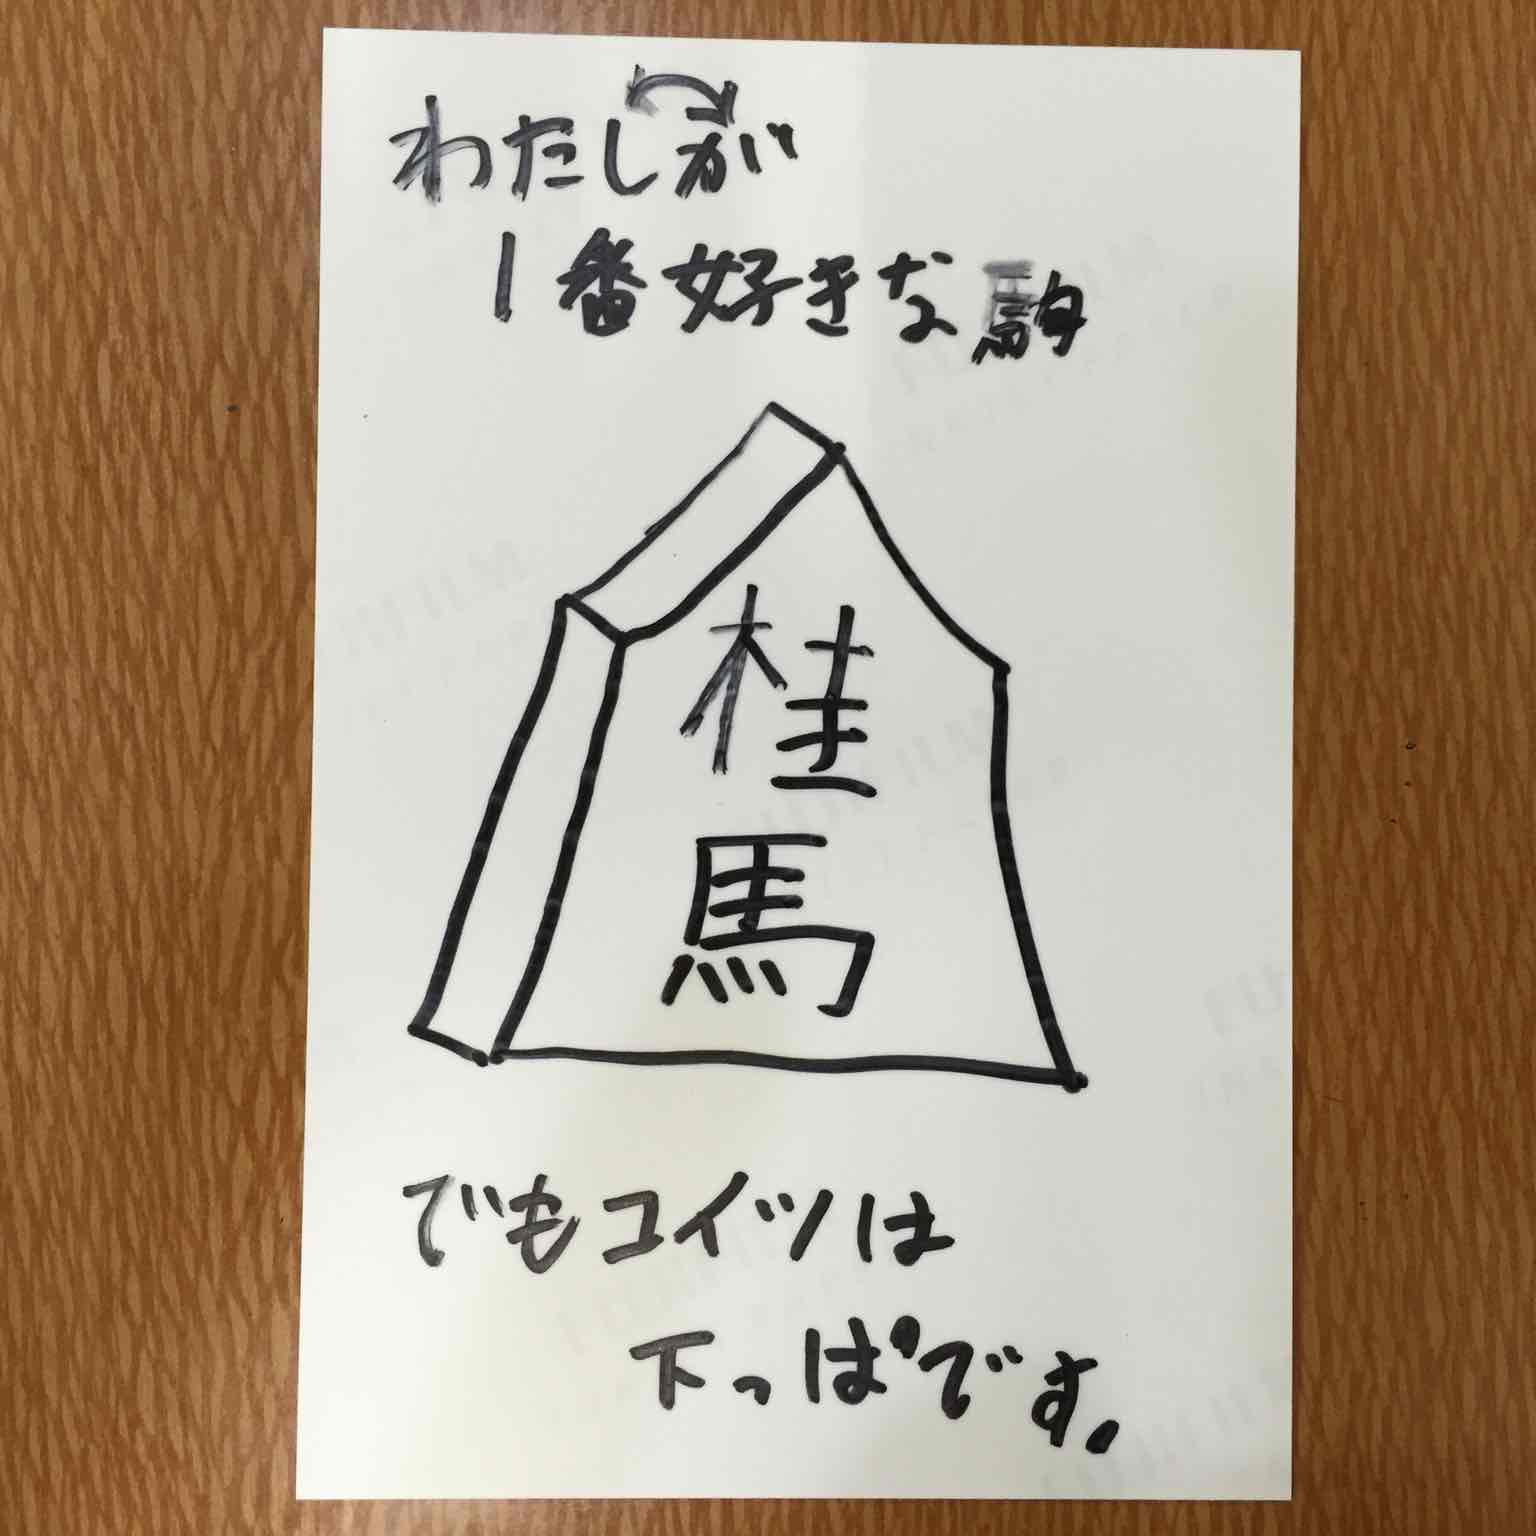 わたしが
1番好きな駒
桂
馬
でもコイツは
下っぱです.